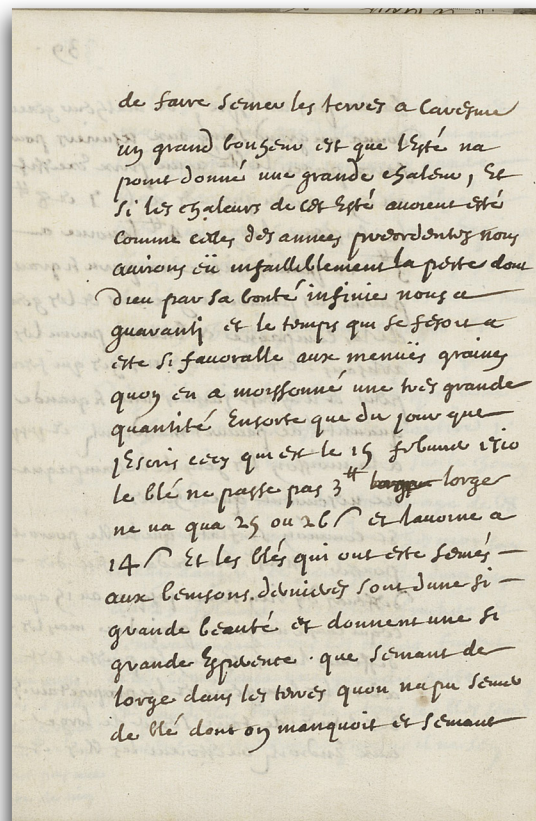 de faire semer les terres a lavenir
un grand bonheur est que lesté na
point donné une grande chaleur, Et
si les chaleurs de cet Esté avoient esté
comme celles des années precedentes nous
aurions eü infailliblement la peste dont
dieu par sa bonté infinie nous a
guaranti et le temps qui se fesoit a
esté si favoralle aux menuës graines
quon en a moissonné une tres grande
quantité Ensorte que du jour que
jEscris cecy qui est le 15 febvrier 1710
le blé ne passe pas 3tt lorge
ne va qua 25 ou 26 s et lavoine a
14 s Et les blés qui ont esté semés
aux semsons dernieres sont dune si
grande beauté et donnent une si
grande Esperence . que semant de
lorge dans les terres quon na pu semer
de blé dont on manquoit et semant